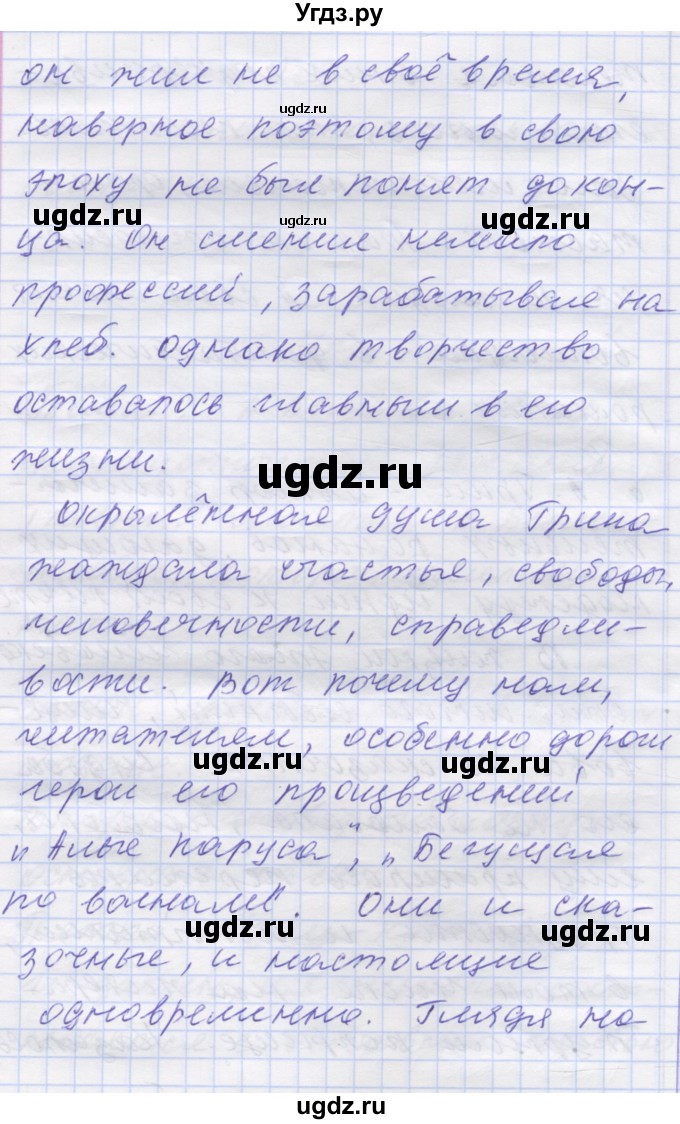 Угдз.ру
он жил не в своё время,
ugdz.ru
наверное поэтому в свою
эпоху не был понят до кон-
ugdz.ru ugdz.ru
ца. Он сменил немало
профессий, зарабатывая на
хлеб. однако творчество
оставалось главным в его
жизни.
ugdz.ru
окрылённая душа Грина
жаждала счастья, свободы,
человечности, справедли-
вости. Вот почему нам,
читателям, особенно дороги
ugdz.ru ugdz.ru
герои его произведений
„Алые паруса", „Бегущая
по волнам". Они и ска-
ugdz.ru ugdz.ru
зочные, и настоящие
одновременно. Глядя на
ugdz.ru